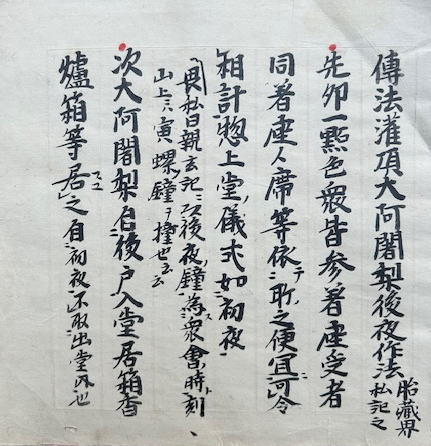 傳法灌頂大阿闍梨後夜作法 胎藏界 私記之
先卯一點色衆皆参著座受者
同著座人席等依テ所之便宜可令
相計惣上堂儀式如初夜
裏私曰親玄記ニ以後夜鐘為衆會時刻
山上ニハ寅螺鐘ヲ撞也云云
次大阿闍梨自後戸入堂居箱香
爐箱等居之自初夜不取出堂内也